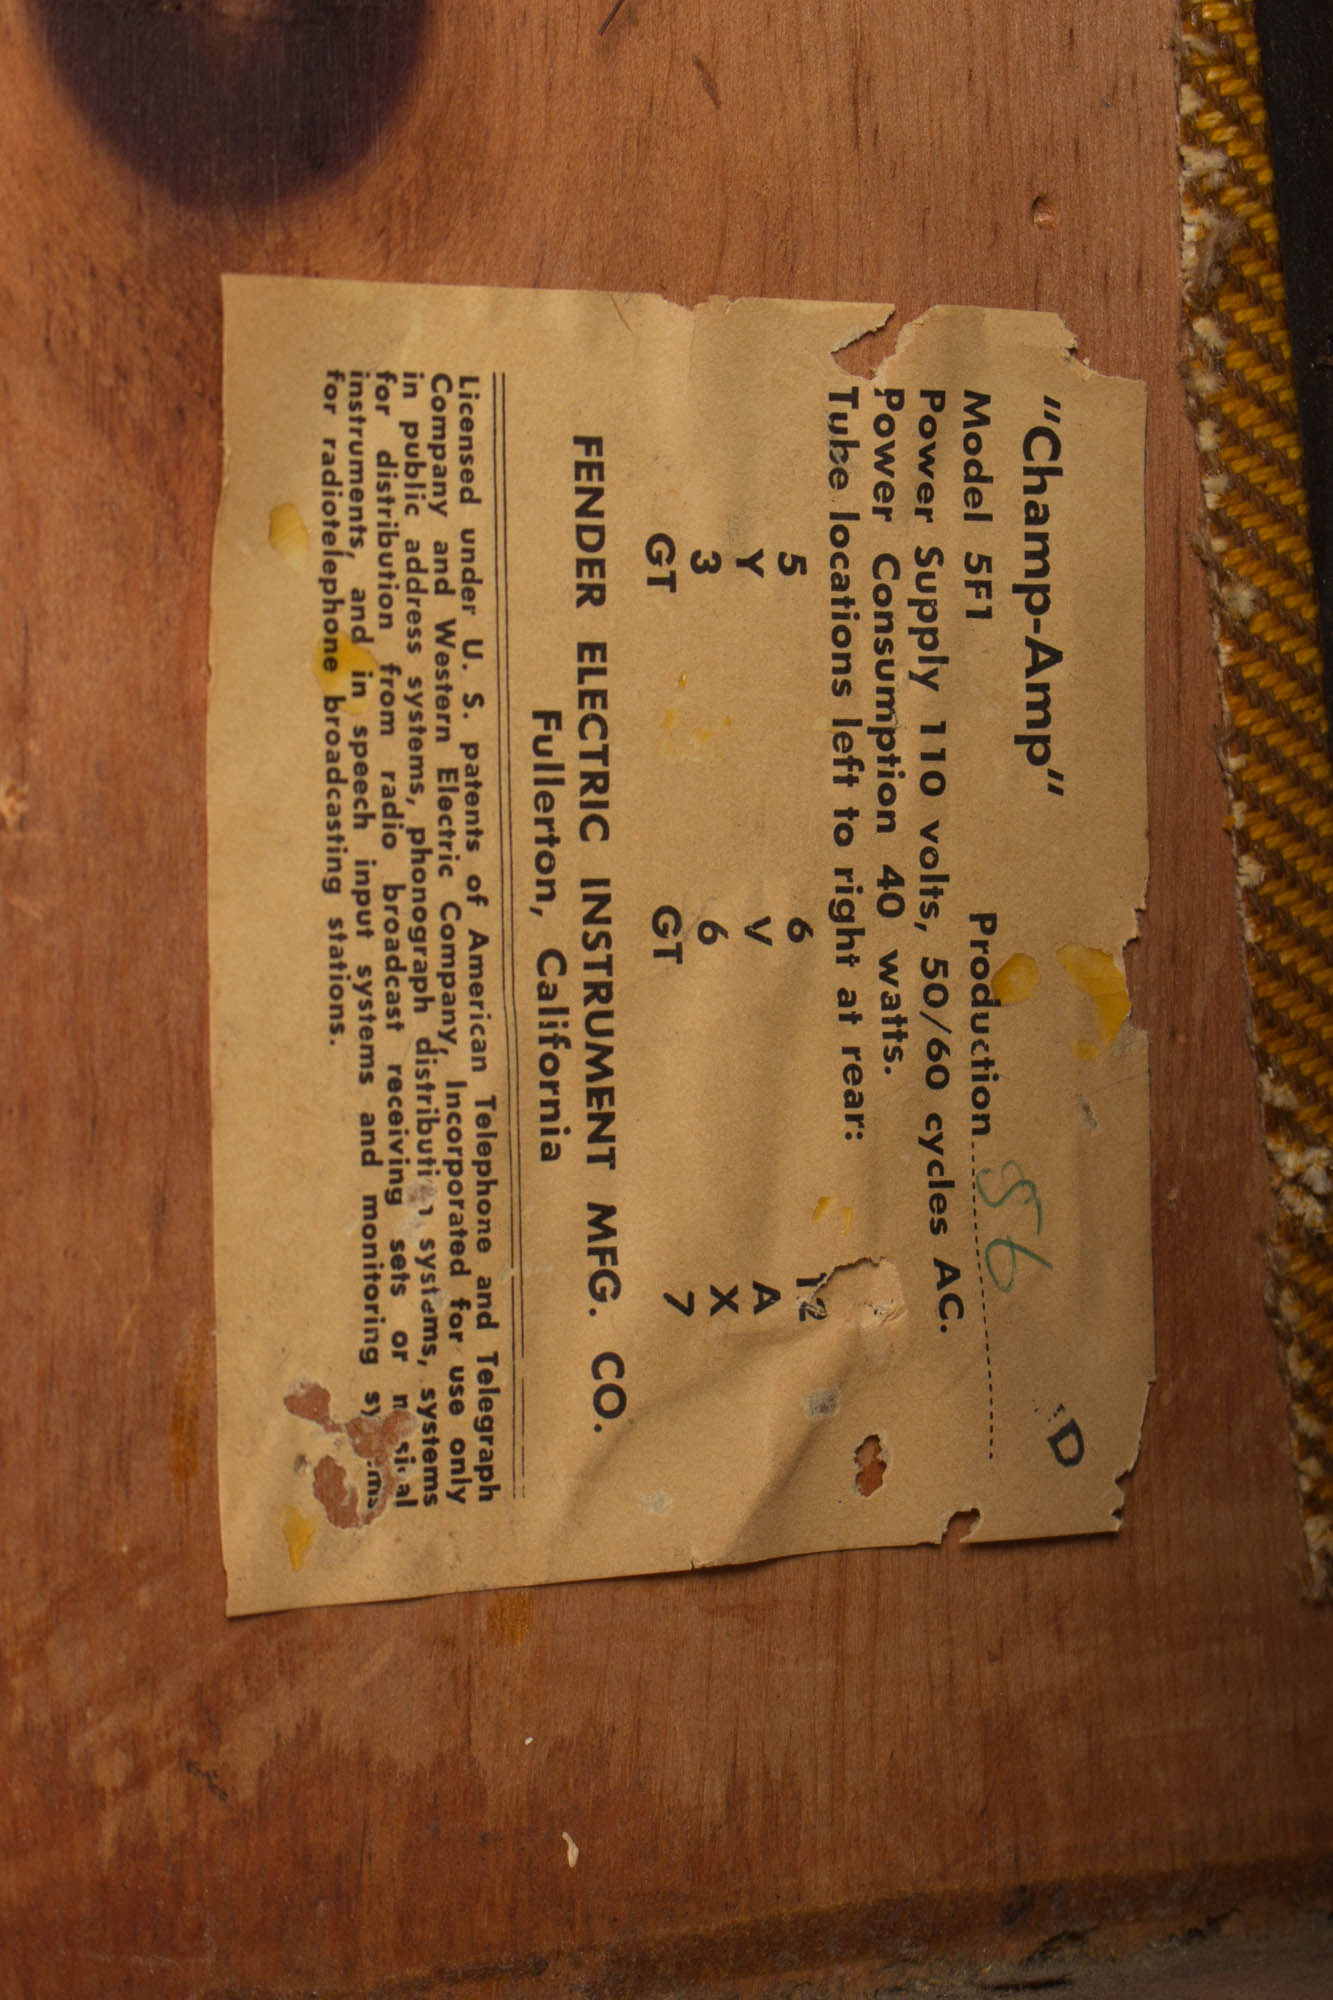 D
"Champ-Amp"
Model 5F1 Production 56
Power Supply 110 volts, 50/60 cycles AC.
Power Consumption 40 watts.
Tube locations left to right at rear:
5 6 12
Y V A
3 6 X
GT GT 7
FENDER ELECTRIC INSTRUMENT MFG. CO.
Fullerton, California
Licensed under U. S. patents of American Telephone and Telegraph
Company and Western Electric Company, Incorporated for use only
in public address systems, phonograph distribution systems, systems
for distribution from radio broadcast receiving sets or musical
instruments, and in speech input systems and monitoring systems
for radiotelephone broadcasting stations.